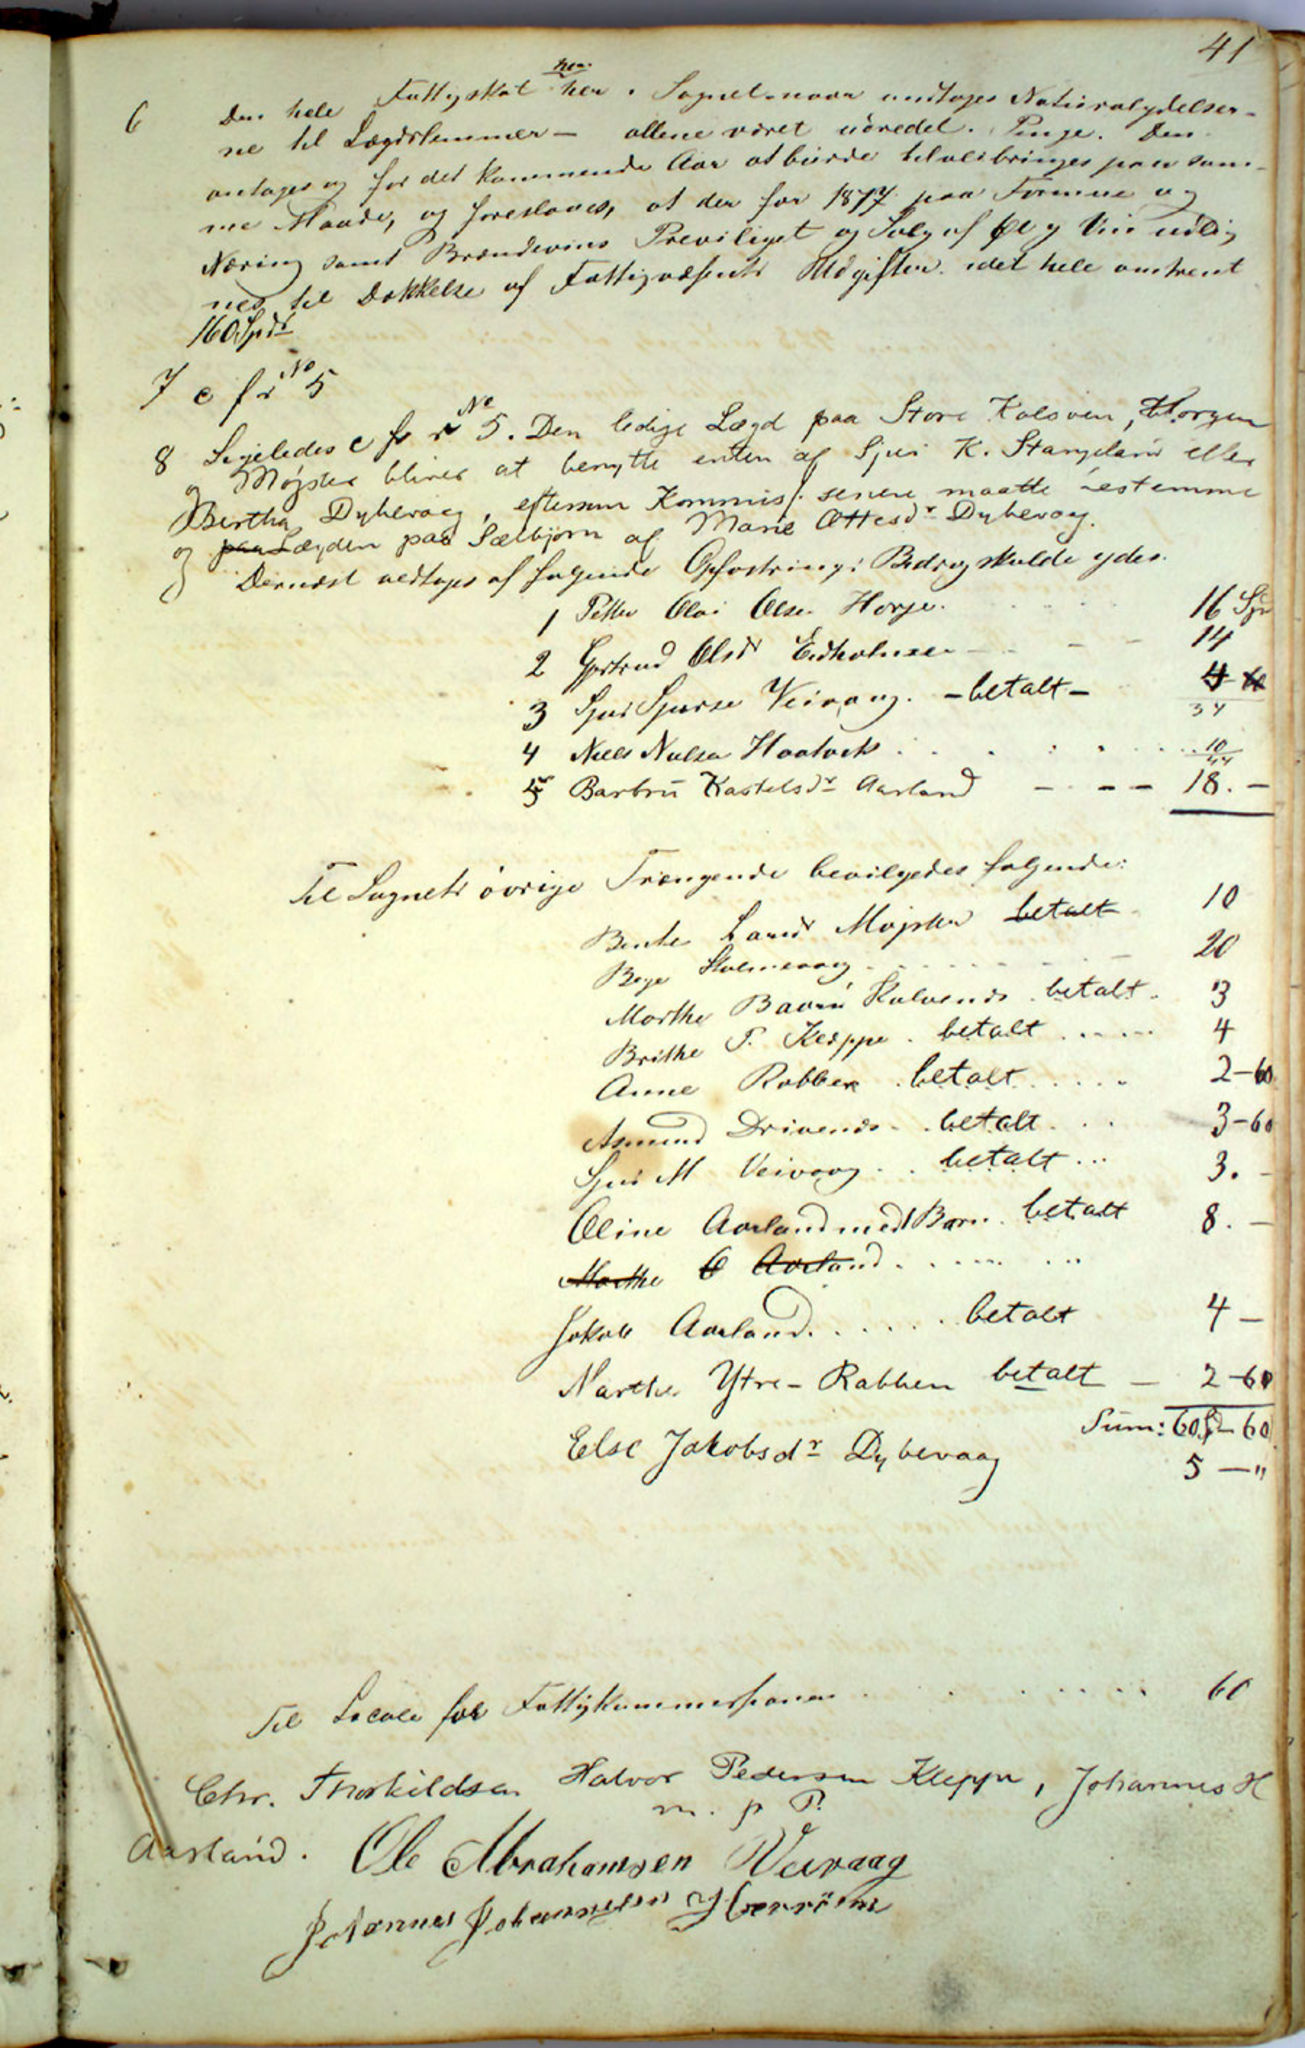 41
har
6 Den hele Fattigskat her i Sognet naar undtages Naturalydelser-
ne til Lægdslemmer – allene været udredet i Penge. Den
antages og for det kommende Aar at burde tilveiebringes paa sam-
me Maade, og foreslaaes, at der for 1877 paa Formue og
Næring samt Brændevins Previliget og Salg af Øl og Vin udlig
nes til Dækkelse af Fattigvæsenets Udgifter i det hele omtrent
160 Spdr
7 cfr No 5
8 Ligeledes cfr No 5. Den ledige Lægd paa Store Kalsøen, Horgen
og Møgster bliver at benytte enten af Sjur K. Stangeland eller
Bertha Dybevaag, eftersom Kommis/: senere maatte bestemme
og paa Lægden paa Sælbjørn af Marie Ottesdr Dybevaag.
Dernæst vedtoges at følgende Opfostrings Bidrag skulde ydes.
1 Petter Olai Olsen Horge. 16 Spr
2 Gjertrud Olsdr Eidholmen – 14
3 Sjur Sjursen Veivaag. – betalt – 4
34
4 Niels Nilsen Haatvek 10
44
5 Barbru Kastelsdr Aarland – – – 18. –
Til Sognets øvrige Trængende bevilgedes følgende:
Bente Larsdr Møgster betalt 10
Børge Stolmevaag 20
Marthe Baarn Kalvenes betalt. 3
Brithe P. Kleppe. betalt 4
Anne Rabben. betalt 2–60
Asmund Drivenes. betalt 3–60
Sjur M Veivaag. betalt 3. –
Oline Aarland med Barn. betalt 8. –
Marthe O Aarland
Jakob Aarland. betalt 4 –
Marthe Ytre–Rabben betalt – 2–60
Sum: 60 Sp– 60
Else Jakobsdr Dybevaag 5 – "
Til Locale for Fattigkommissionen 60
Chr. Thorkildsen Halvor Pedersen Kleppe, Johannes H
m. p. P.
Aarland. Ole Abrahamsen Veivaag
Johannes Johannesen